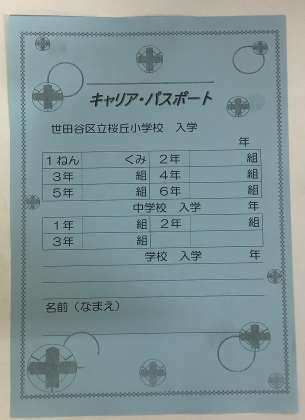 キャリア・パスポート
世田谷区立桜丘小学校 入学
年
1ねん くみ 2年 組
3年 組 4年 組
5年 組 6年 組
中学校 入学 年
1年 組 2年 組
3年 組
学校 入学 年
名前(なまえ)